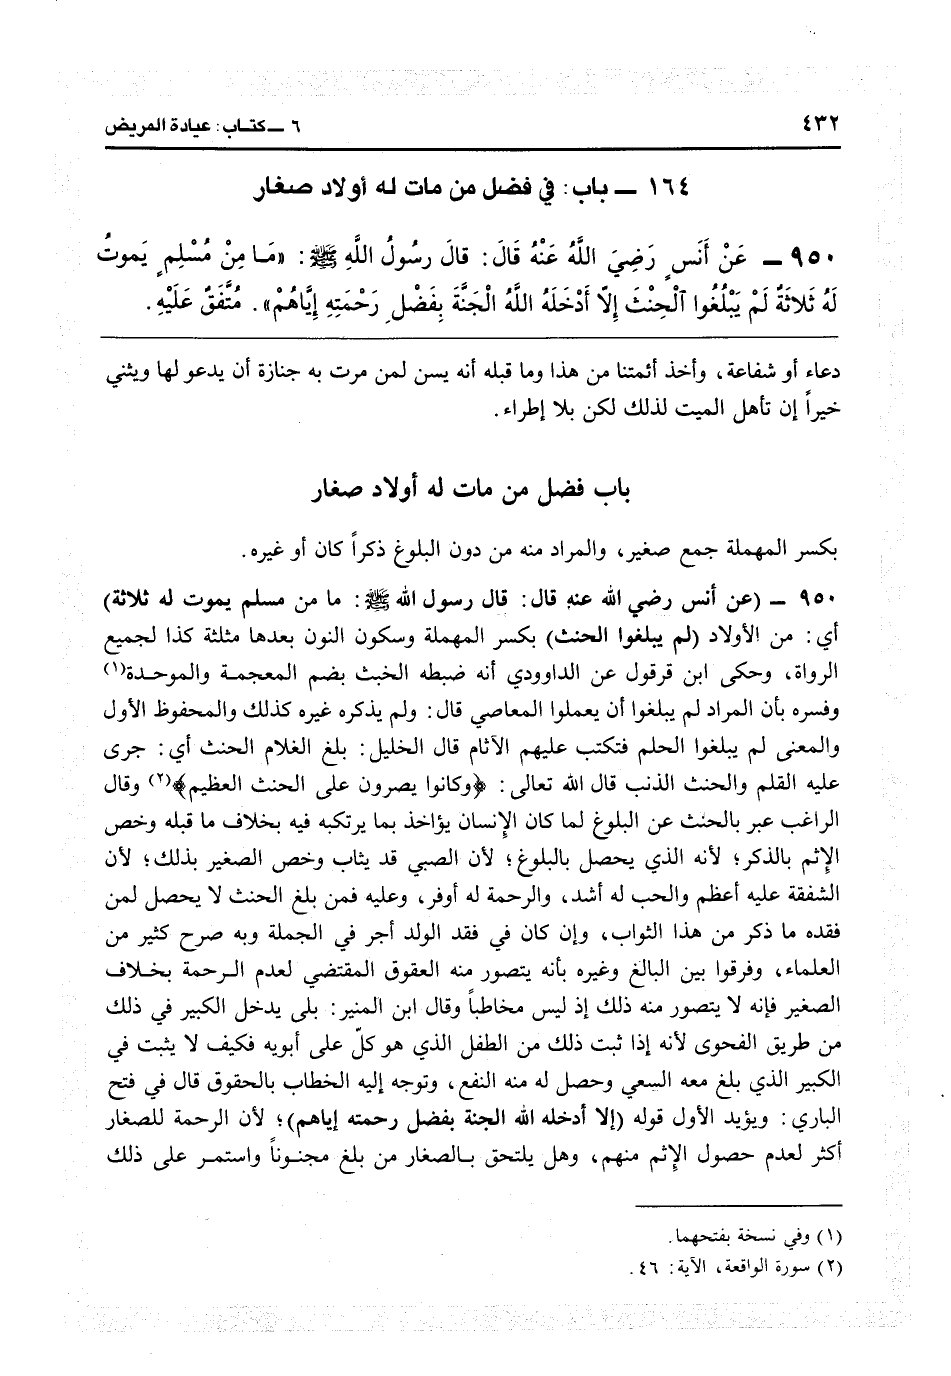 ٤٣٢
٦ ــ كتاب: عيادة المريض
١٦٤ ــ باب: في فضل من مات له أولاد صغار
٩٥٠ ــ عَنْ أَنَسٍ رَضِيَ اللَّهُ عَنْهُ قَالَ: قالَ رسُولُ اللَّهِ ﷺ: «مَا مِنْ مُسْلِمٍ يَموتُ
لَهُ ثَلاثَةٌ لَمْ يَبْلُغُوا ٱلْحِنْثَ إِلاَّ أَدْخَلَهُ اللَّهُ الْجَنَّةَ بِفَضْلِ رَحْمَتِهِ إِيَّاهُمْ». مُتَّفَقٌ عَلَيْهِ.
دعاء أو شفاعة، وأخذ أئمتنا من هذا وما قبله أنه يسن لمن مرت به جنازة أن يدعو لها ويثني
خيراً إن تأهل الميت لذلك لكن بلا إطراء.
باب فضل من مات له أولاد صغار
بكسر المهملة جمع صغير، والمراد منه من دون البلوغ ذكراً كان أو غيره.
٩٥٠ ــ (عن أنس رضي الله عنه قال: قال رسول الله ﷺ: ما من مسلم يموت له ثلاثة)
أي: من الأولاد (لم يبلغوا الحنث) بكسر المهملة وسكون النون بعدها مثلثة كذا لجميع
الرواة، وحكى ابن قرقول عن الداوودي أنه ضبطه الخبث بضم المعجمة والموحدة(١)
وفسره بأن المراد لم يبلغوا أن يعملوا المعاصي قال: ولم يذكره غيره كذلك والمحفوظ الأول
والمعنى لم يبلغوا الحلم فتكتب عليهم الآثام قال الخليل: بلغ الغلام الحنث أي: جرى
عليه القلم والحنث الذنب قال الله تعالى: ﴿وكانوا يصرون على الحنث العظيم﴾(٢) وقال
الراغب عبر بالحنث عن البلوغ لما كان الإنسان يؤاخذ بما يرتكبه فيه بخلاف ما قبله وخص
الإثم بالذكر؛ لأنه الذي يحصل بالبلوغ؛ لأن الصبي قد يثاب وخص الصغير بذلك؛ لأن
الشفقة عليه أعظم والحب له أشد، والرحمة له أوفر، وعليه فمن بلغ الحنث لا يحصل لمن
فقده ما ذكر من هذا الثواب، وإن كان في فقد الولد أجر في الجملة وبه صرح كثير من
العلماء، وفرقوا بين البالغ وغيره بأنه يتصور منه العقوق المقتضي لعدم الرحمة بخلاف
الصغير فإنه لا يتصور منه ذلك إذ ليس مخاطباً وقال ابن المنير: بلى يدخل الكبير في ذلك
من طريق الفحوى لأنه إذا ثبت ذلك من الطفل الذي هو كلّ على أبويه فكيف لا يثبت في
الكبير الذي بلغ معه السعي وحصل له منه النفع، وتوجه إليه الخطاب بالحقوق قال في فتح
الباري: ويؤيد الأول قوله (إلا أدخله الله الجنة بفضل رحمته إياهم)؛ لأن الرحمة للصغار
أكثر لعدم حصول الإثم منهم، وهل يلتحق بالصغار من بلغ مجنوناً واستمر على ذلك
(١) وفي نسخة بفتحهما.
(٢) سورة الواقعة، الآية: ٤٦.